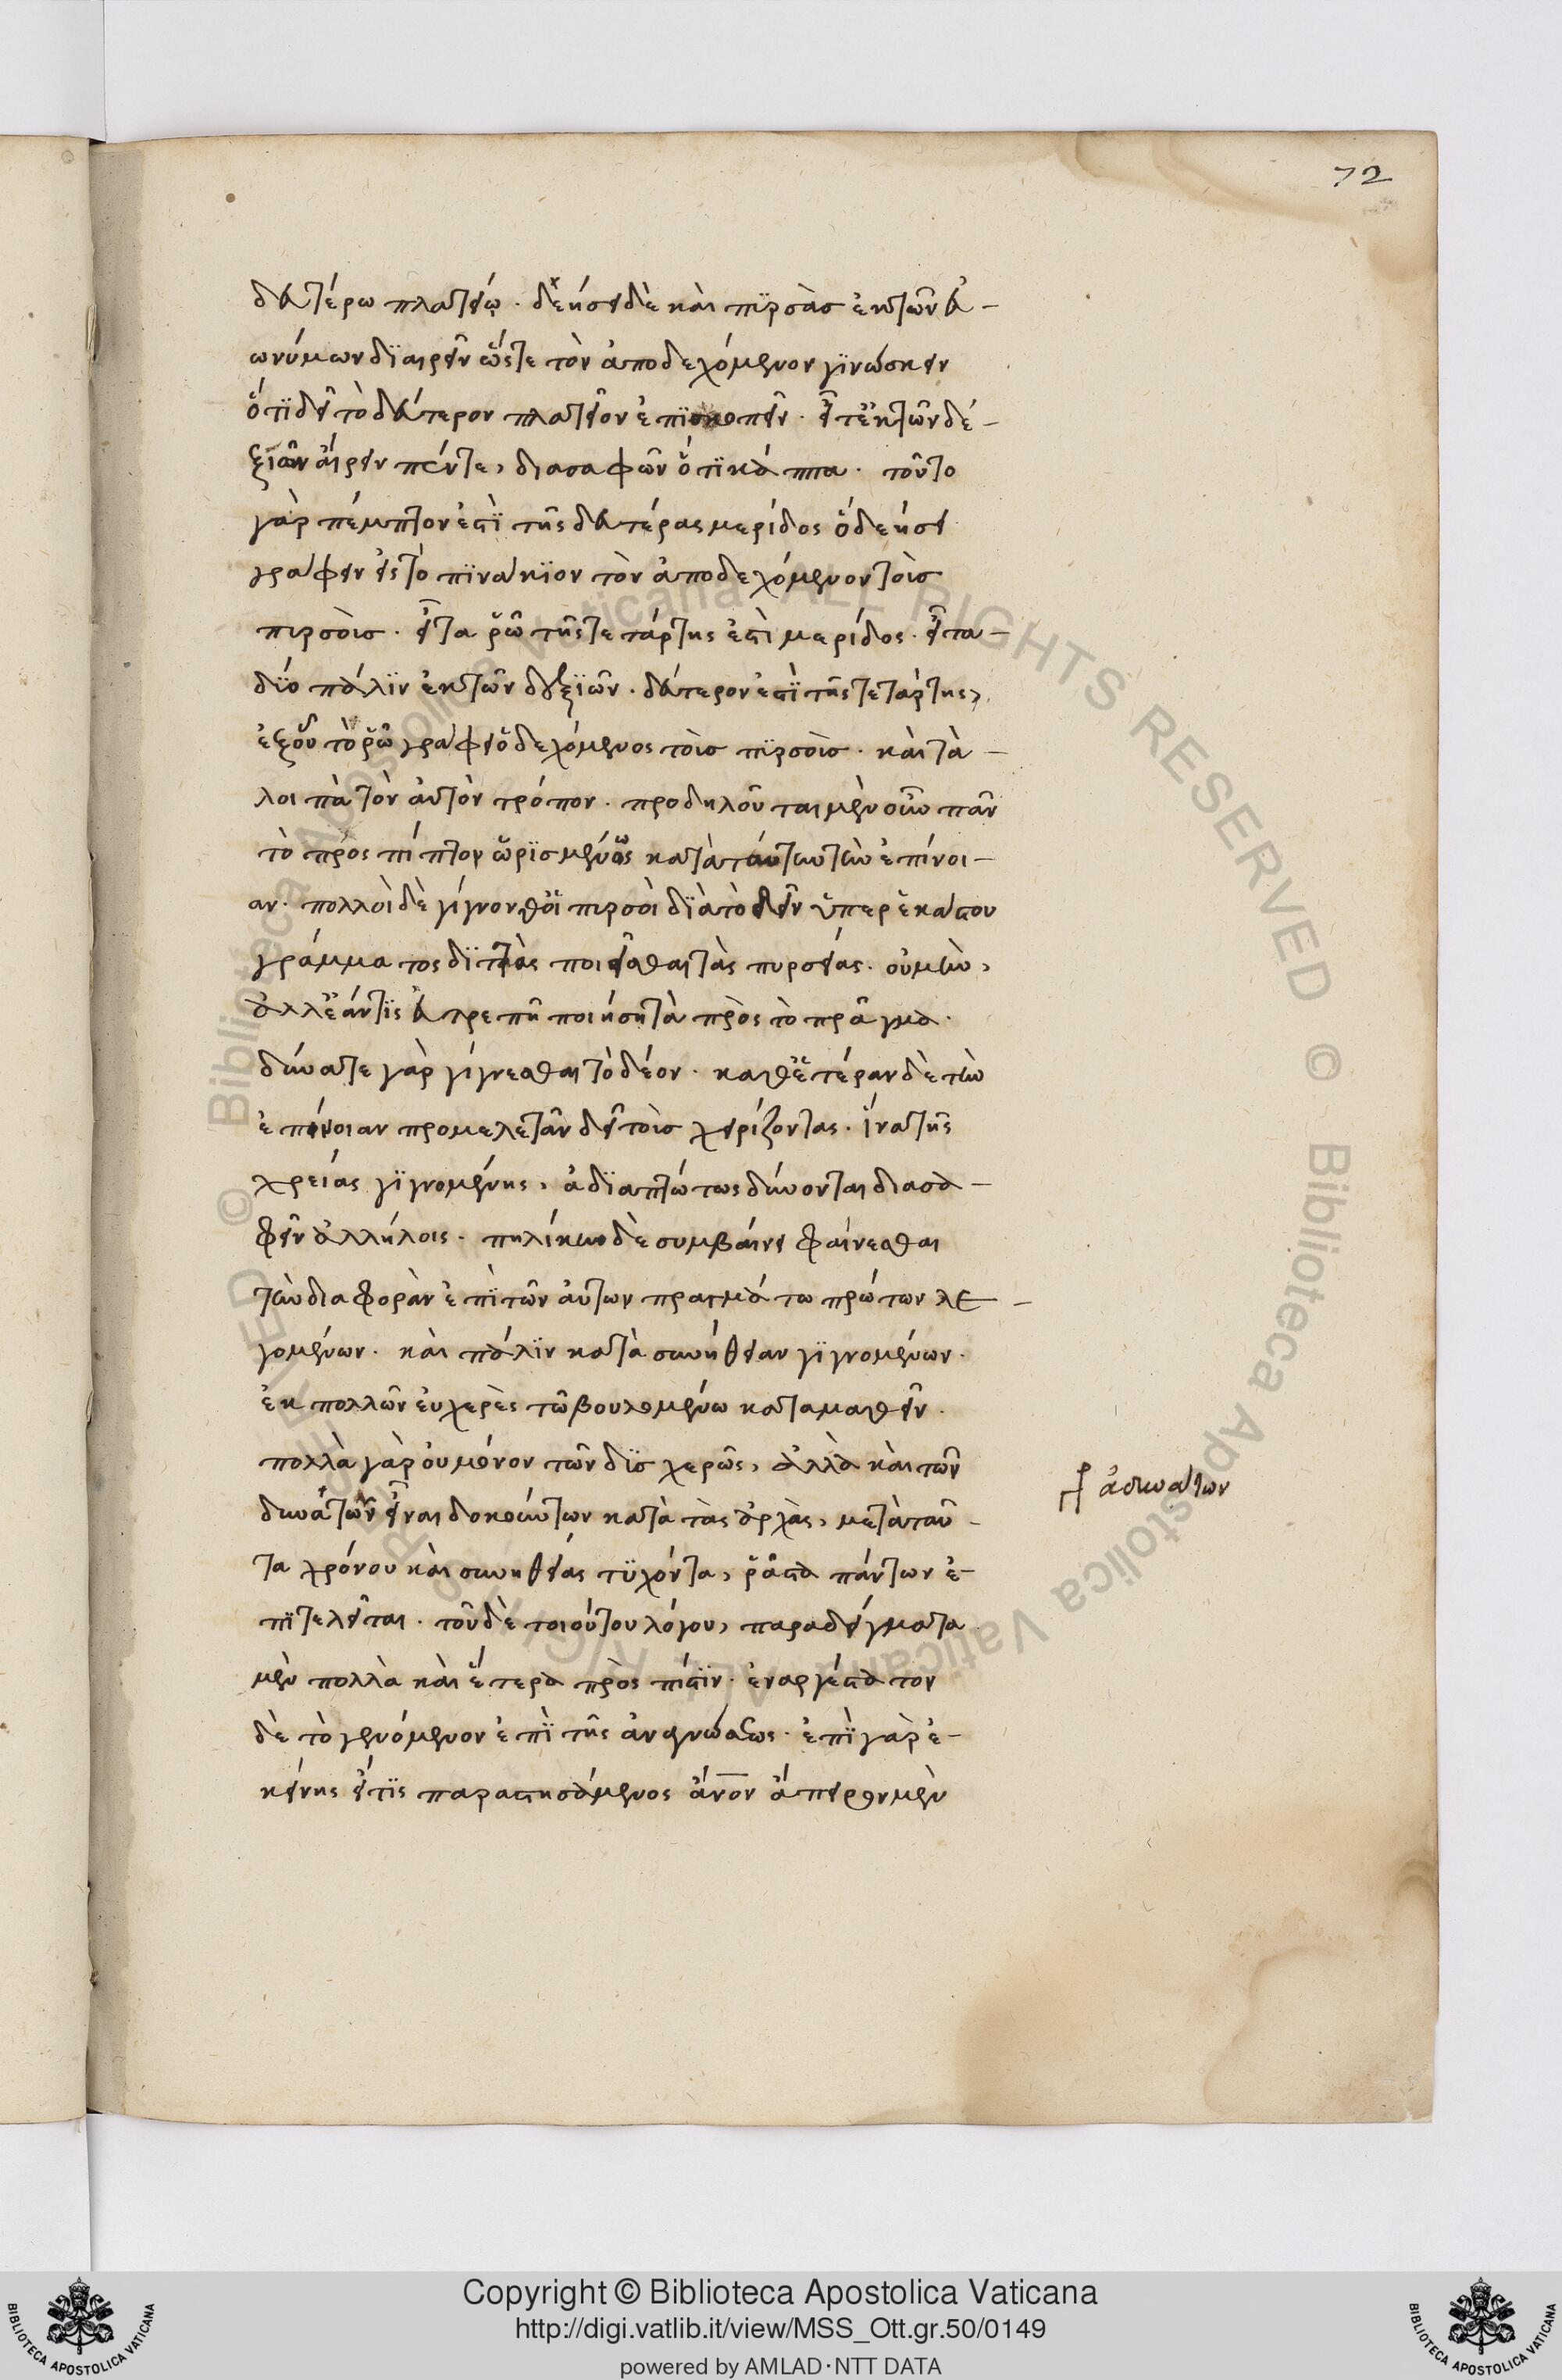 72
δευτέρω πλατείῳ. δεήσει δὲ καὶ πϊρσὰσ ἐκ τῶν εὐ-
ωνύμων δϊαιρεῖν ὥστε τὸν ἀποδεχόμενον γϊνώσκειν
ὅτϊ δεῖ τὸ δεύτερον πλατεῖον ἐπϊσκοπεῖν. εἶτ' ἐκ τῶν δε-
ξιῶν αἴρειν πέντε, διασαφῶν ὅτϊ κάππα. τοῦτο
γὰρ πέμπτον ἐστὶ τῆς δευτέρας μερίδος ὃ δεήσει
γράφειν εἰς τὸ πϊνάκϊον τὸν ἀποδεχόμενον τοὶσ
πιρσοὶσ. εἶτα ῥῶ τῆς τετάρτης ἐστὶ μερίδος. εἶτα
δϊό πάλϊν ἐκ τῶν δεξϊῶν. δεύτερον ἐστὶ τῆς τετάρτης,
ἐξ οὗ τὸ ῥῶ γράφει ὁ δεχόμενος τοὶσ πϊρσοὶσ. καὶ τὰ
λοιπὰ τὸν αὐτὸν τρόπον. προδηλοῦται μὲν οὖν πᾶν
τὸ πρόσπίπτον ὡρϊσμένως κατὰ ταύτην τὴν ἐπίνοι-
αν. πολλοὶ δὲ γίγνονθ' οἱ πιρσοὶ δϊὰ τὸ δεῖν ὑπερ ἑκάστου
γράμματος δϊττὰς ποιεῖσθαι τὰς πυρσείας. οὐ μὴν,
ἀλλ' ἐάν τϊς εὐτρεπῆ ποιήσῃ τὰ πρὸς τὸ πρᾶγμα.
δύνατε γὰρ γίγνεσθαι τὸ δέον. καθ' ἑτέραν δὲ τὴν
ἐπίνοιαν προμελετᾶν δεῖ τοὶσ χειρίζοντας. ἵνα τῆς
χρείας γϊγνομένης, ἀδϊαπτώτως δύνονται διασα-
φεῖν ἀλλήλοις. πηλίκην δὲ συμβαίνει φαίνεσθαι
τὴν διαφορὰν ἐπὶ τῶν αὐτων πραγμάτω πρώτων λε-
γομένων. καὶ πάλϊν κατὰ συνήθειαν γϊγνομένων.
ἐκ πολλῶν εὐχερὲς τῶ βουλομένω καταμαθεῖν.
πολλὰ γὰρ οὐ μόνον τῶν δϊσχερῶς, ἀλλὰ καὶ τῶν
δυνατῶν εἶναι δοκούντων κατὰ τὰς ἀρχὰς, μετὰ ταῦ-
τα χρόνου καὶ συνηθείας τϋχόντα, ῥᾷστα πάντων ἐ-
πϊτελεῖται. τοῦ δὲ τοιούτου λόγου, παραδείγματα
μὲν πολλὰ καὶ ἕτερα πρὸς πίστϊν. ἐναργέστατον
δὲ τὸ γενόμενον ἐπὶ τῆς ἀνγνώσεως. ἐπὶ γὰρ ἐ-
κείνης εἴ τϊς παραστησάμενος ἄνον ἄπειρον μὲν
γρ ἀδυνάτων
Copyright © Biblioteca Apostolica Vaticana
http://digi.vatlib.it/view/MSS_Ott.gr.50/0149
powered by AMLAD·NTT DATA
BIBLIOTECA APOSTOLICA VATICANA
BIBLIOTECA APOSTOLICA VATICANA
© Biblioteca Apostolica Vaticana ALL RIGHTS RESERVED © Biblioteca Apostolica Vaticana ALL RIGHTS RESERVED